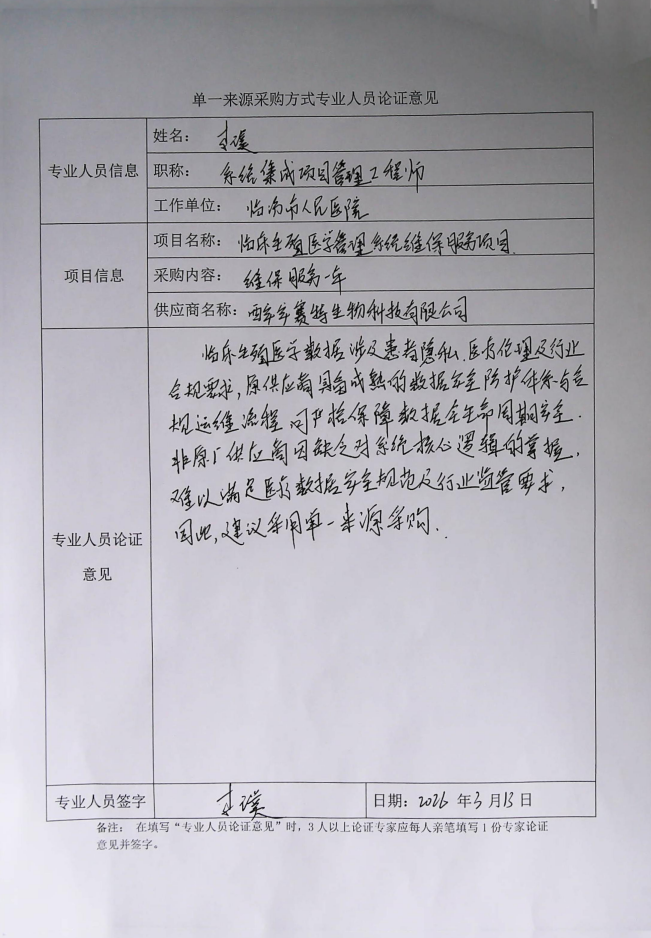 单一来源采购方式专业人员论证意见
专业人员信息
姓名：
职称： 系统集成项目管理工程师
工作单位： 临汾市人民医院
项目信息
项目名称： 临床生殖医学管理系统维保服务项目
采购内容： 维保服务一年
供应商名称： 西安安赛特生物科技有限公司
专业人员论证
意见
临床生殖医学数据涉及患者隐私、医疗伦理及行业
合规要求，原供应商具备成熟的数据安全防护体系与合
规运维流程，可严格保障数据全生命周期安全.
非原厂供应商因缺乏对系统核心逻辑的掌握，
难以满足医疗数据安全规范及行业监管要求，
因此，建议采用单一来源采购.
专业人员签字
日期：2026 年 3 月 13 日
备注： 在填写“专业人员论证意见”时，3 人以上论证专家应每人亲笔填写 1 份专家论证
意见并签字。